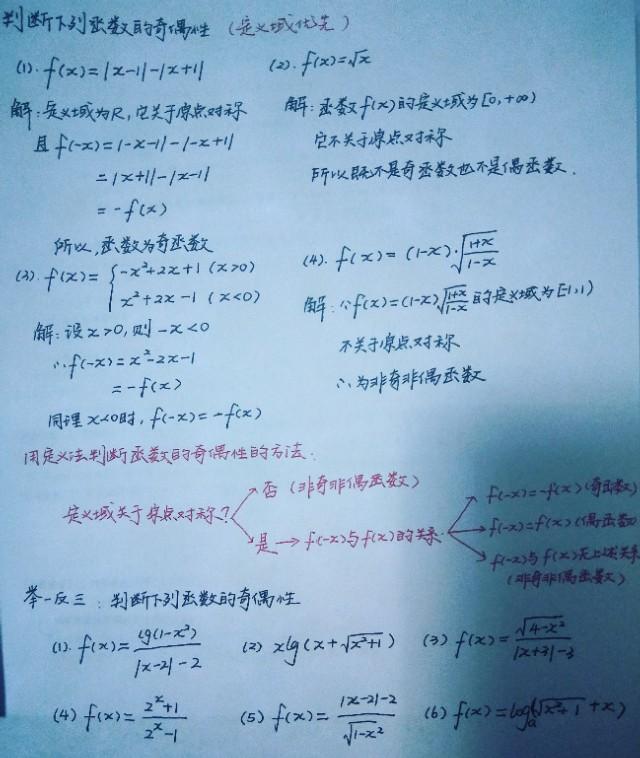 判断下列函数的奇偶性 (定义域优先)
(1). f(x)=|x-1|-|x+1|
解:定义域为R,它关于原点对称
且 f(-x)=|-x-1|-|-x+1|
=|x+1|-|x-1|
=-f(x)
所以,函数为奇函数
(2). f(x)=√x
解:函数f(x)的定义域为[0,+∞)
它不关于原点对称
所以既不是奇函数也不是偶函数.
(3). f(x)={-x²+2x+1 (x>0)
x²+2x-1 (x<0)
解:设x>0,则-x<0
∴f(-x)=x²-2x-1
=-f(x)
同理x<0时,f(-x)=-f(x)
(4). f(x)=(1-x)·√((1+x)/(1-x))
解:∵f(x)=(1-x)√((1+x)/(1-x))的定义域为[-1,1)
不关于原点对称
∴为非奇非偶函数
用定义法判断函数的奇偶性的方法:
定义域关于原点对称?
否(非奇非偶函数)
是→f(-x)与f(x)的关系
f(-x)=-f(x)(奇函数)
f(-x)=f(x)(偶函数)
f(-x)与f(x)无上述关系
(非奇非偶函数)
举一反三:判断下列函数的奇偶性
(1). f(x)=lg(1-x²)/(|x-2|-2) (2) xlg(x+√(x²+1)) (3) f(x)=√(4-x²)/(|x+3|-3)
(4) f(x)=(2ˣ+1)/(2ˣ-1) (5) f(x)=(|x-2|-2)/√(1-x²) (6) f(x)=logₐ(√(x²+1)+x)